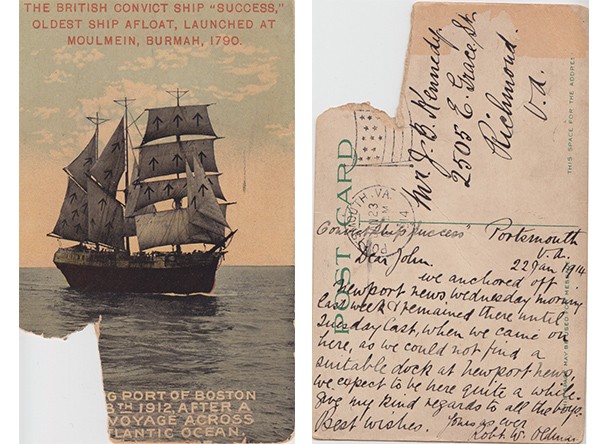 THE BRITISH CONVICT SHIP "SUCCESS,"
OLDEST SHIP AFLOAT, LAUNCHED AT
MOULMEIN, BURMAH, 1790.
G PORT OF BOSTON
TH 1912, AFTER A
VOYAGE ACROSS
LANTIC OCEAN.
Mr J. B. Kennedy
2505 E Grace St.
Richmond
Va.
THIS SPACE FOR THE ADDRESS
POST CARD
OUTH, VA.
23
14
Convict Ship "Success" Portsmouth
Va.
22 Jan 1914
Dear John.
we anchored off
Newport news, wednesday morning
last week & remained there until
Tuesday last, when we came over
here, as we could not find a
suitable dock at newport news
we expect to be here quite a while.
give my kind regards to all the boys.
Best wishes. yours as ever
Robt. W.